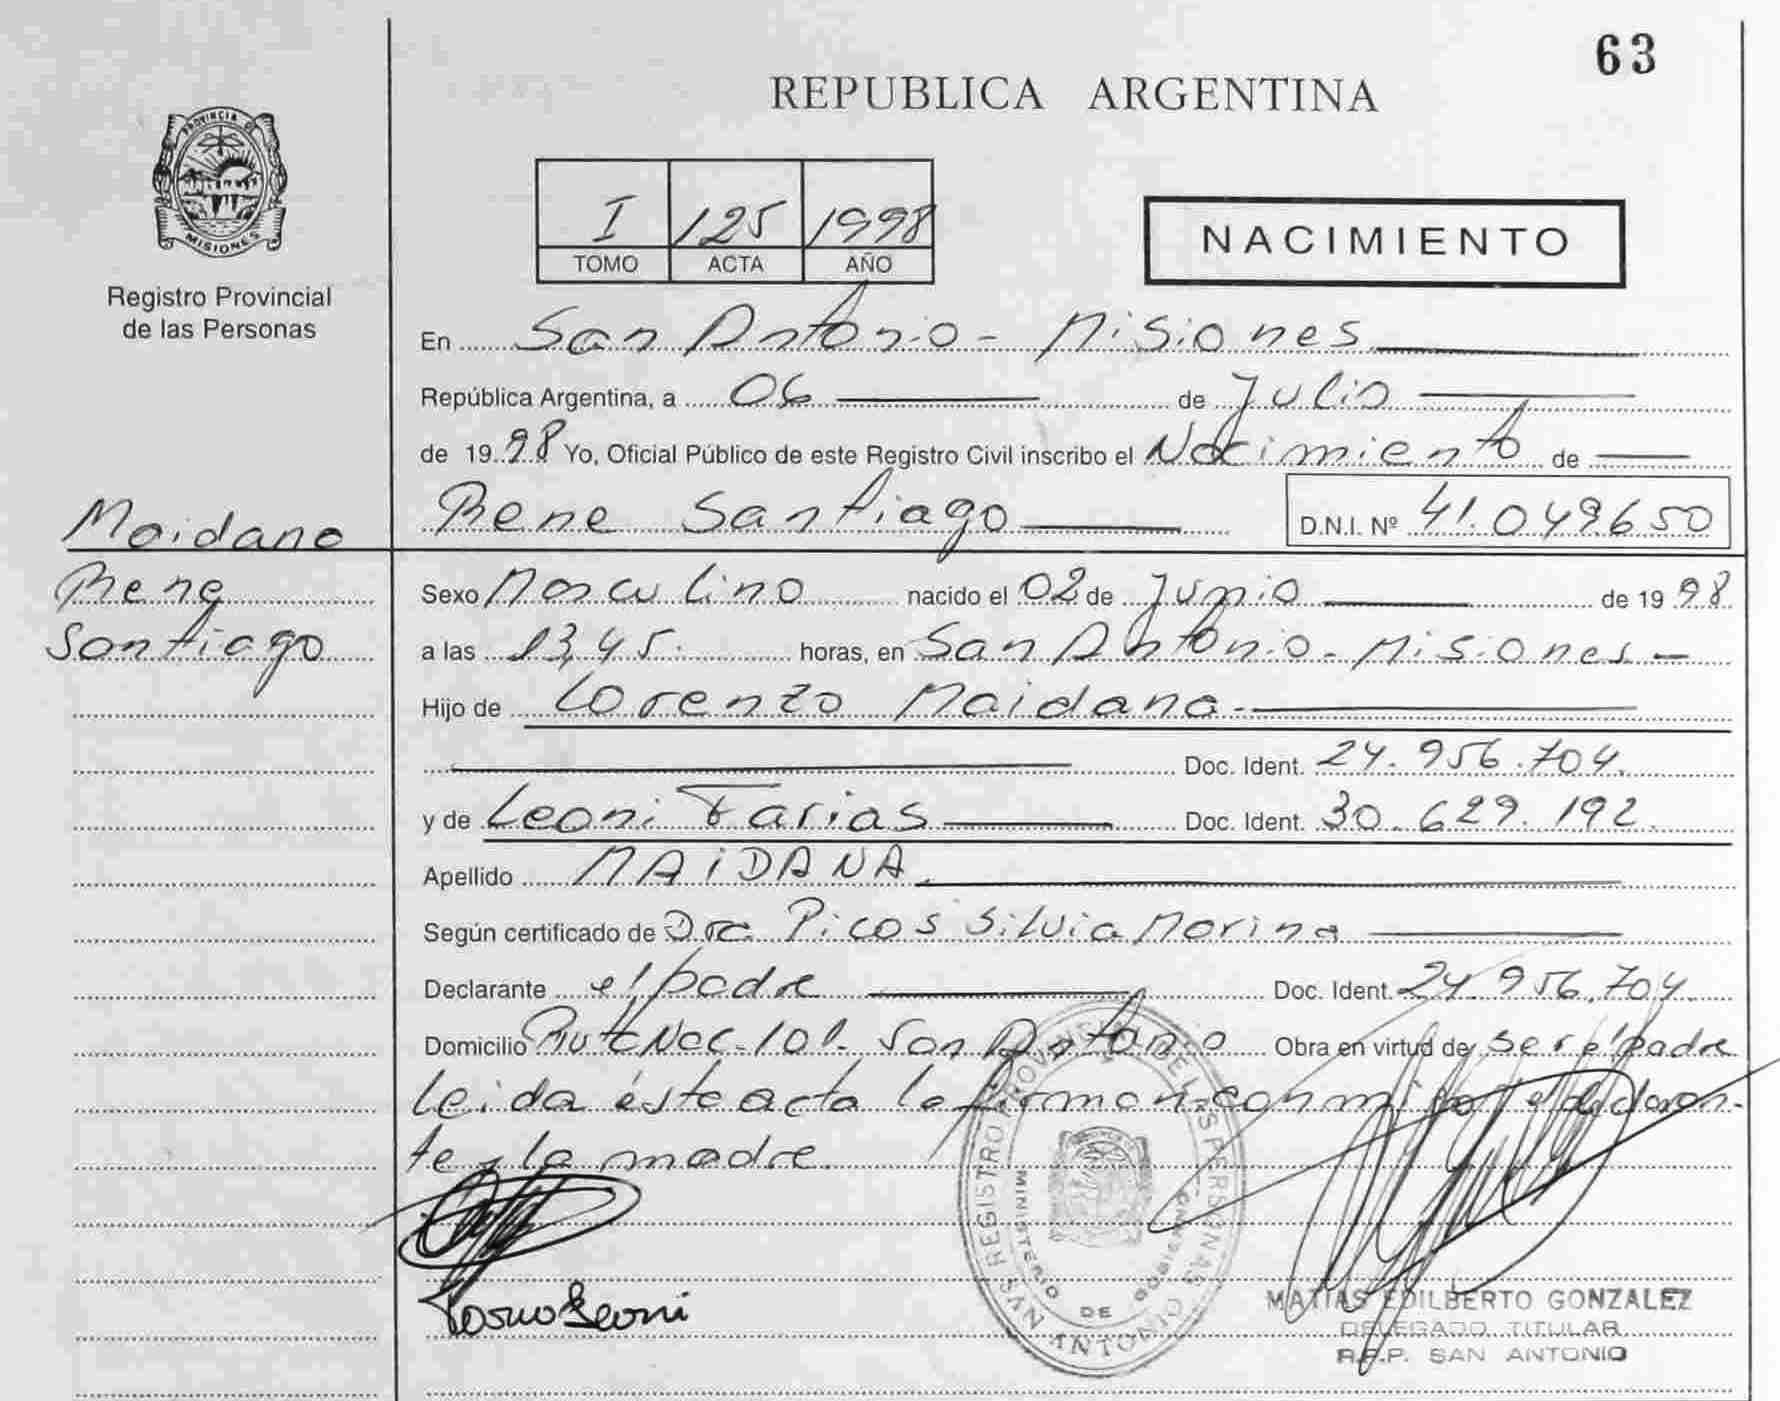 63
REPUBLICA ARGENTINA
PROVINCIA DE
MISIONES
Registro Provincial
de las Personas
I 125 1998
TOMO ACTA AÑO
NACIMIENTO
En San Antonio - Misiones
República Argentina, a 06 de Julio
de 1998 Yo, Oficial Público de este Registro Civil inscribo el Nacimiento de
Rene Santiago D.N.I. Nº 41.049650
Maidana
Rene
Santiago
Sexo Masculino nacido el 02 de Junio de 1998
a las 13,45. horas, en San Antonio - Misiones -
Hijo de Lorenzo Maidana -
Doc. Ident. 24.956.704.
y de Leoni Farias Doc. Ident. 30.629.192.
Apellido MAIDANA.
Según certificado de Dra. Picos Silvia Marina
Declarante el padre Doc. Ident. 24.956.704.
Domicilio Ruta Nac. 101. San Antonio Obra en virtud de ser el padre
Leida éste acta la firman conmigo el declaran-
te y la madre.
Leoni
REGISTRO PROVINCIAL DE LAS PERSONAS
MINISTERIO DE GOBIERNO
SAN ANTONIO
MATIAS EDILBERTO GONZALEZ
DELEGADO TITULAR
R.P.P. SAN ANTONIO